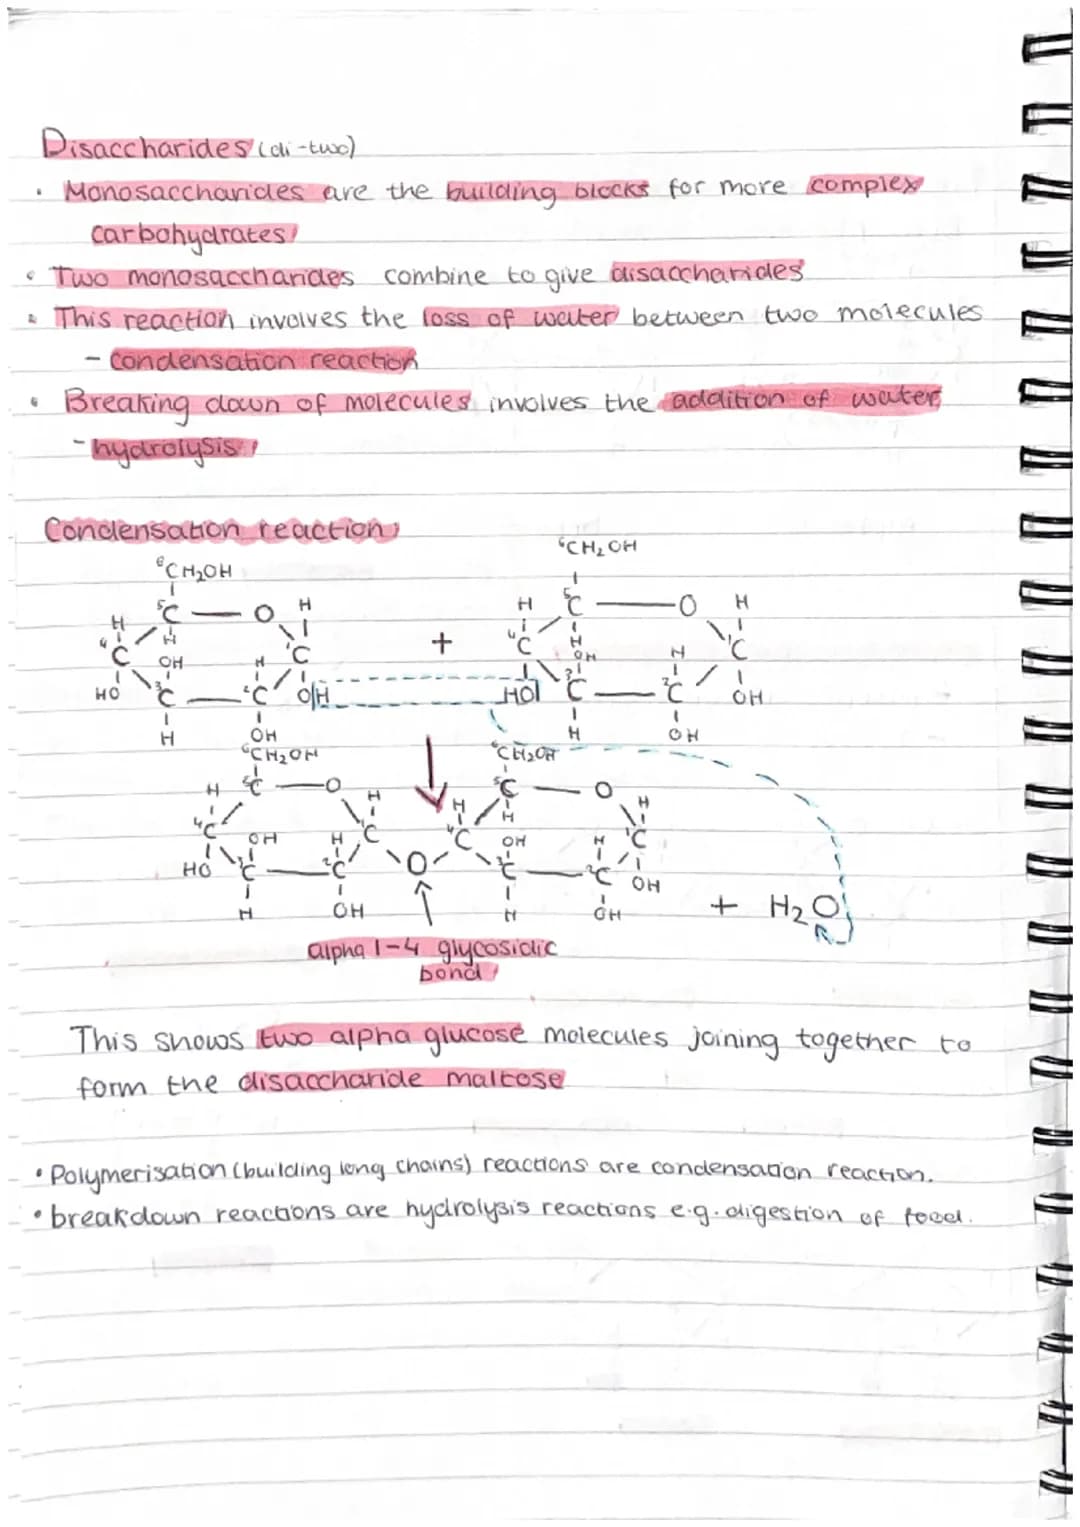 Disaccharides (di-two)
• Monosaccharides are the building blocks for more complex
carbohydrates
• Two monosaccharides combine to give disaccharides
• This reaction involves the loss of water between two molecules
- condensation reaction
• Breaking down of molecules involves the addition of water
- hydrolysis
Condensation reaction
⁶CH₂OH
⁶CH₂OH
⁵C O H
H ⁵C O H
H H
⁴C OH H ¹C
+
⁴C H OH H ¹C
HO ³C ²C OH
HO ³C ²C OH
H OH
H OH
⁶CH₂OH
⁶CH₂OH
H ⁵C O H
H ⁵C O H
⁴C OH H ¹C
⁴C H OH H ¹C
HO ³C ²C O ³C ²C OH
H OH
H OH
+ H₂O
alpha 1-4 glycosidic
bond
This shows two alpha glucose molecules joining together to
form the disaccharide maltose
• Polymerisation (building long chains) reactions are condensation reaction.
• breakdown reactions are hydrolysis reactions e.g. digestion of food.